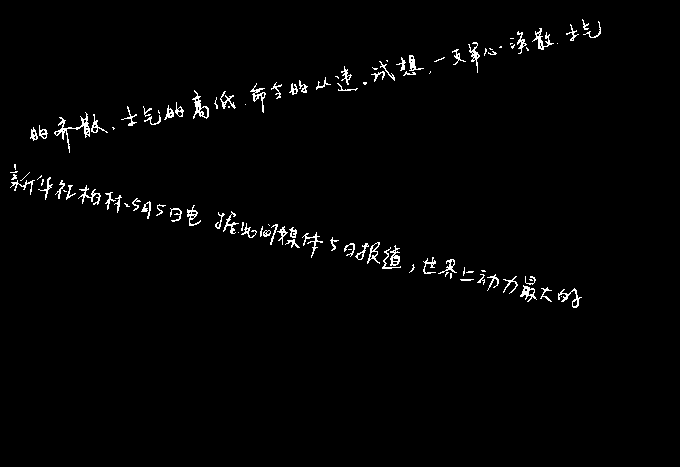 的齐散、士气的高低、命令的从违。试想,一支军心涣散、士气
新华社柏林5月5日电 据此间媒体5日报道,世界上动力最大的